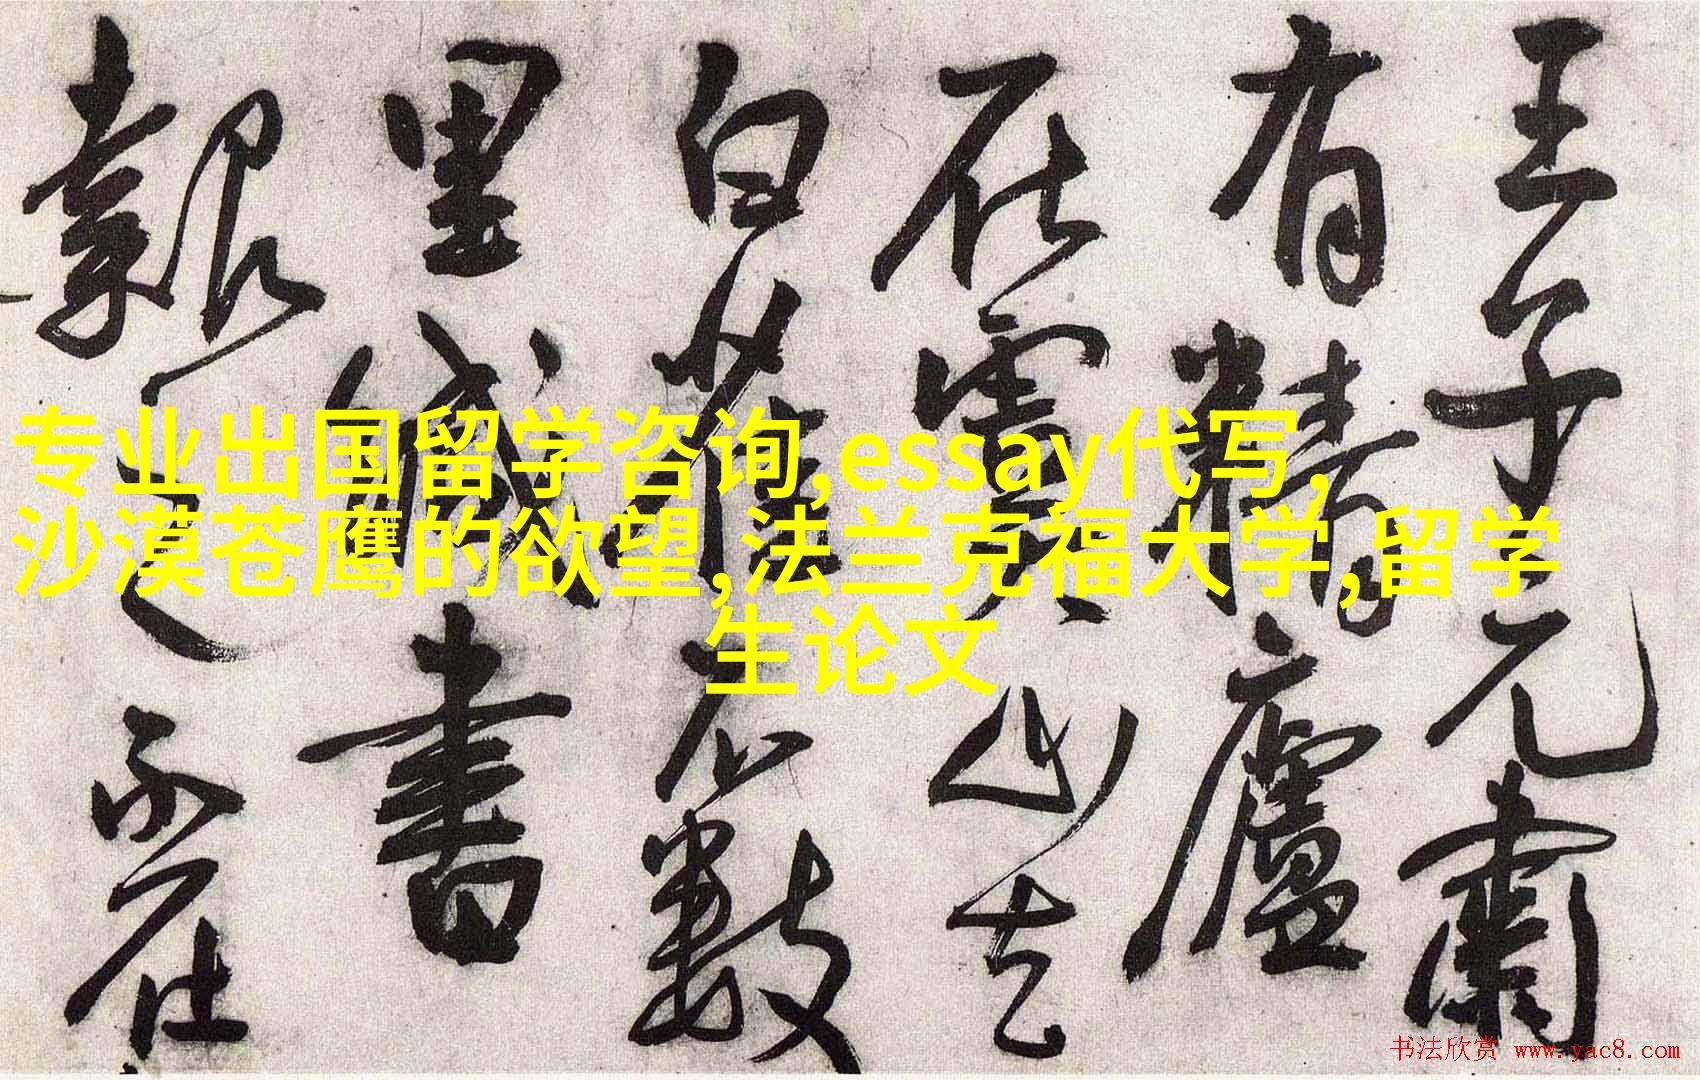 王子元肅
有精廬
在靈山去
白不數
里緘書
報之不在
专业出国留学咨询,essay代写,
沙漠苍鹰的欲望,法兰克福大学,留学
生论文
书法欣赏 www.yac8.com